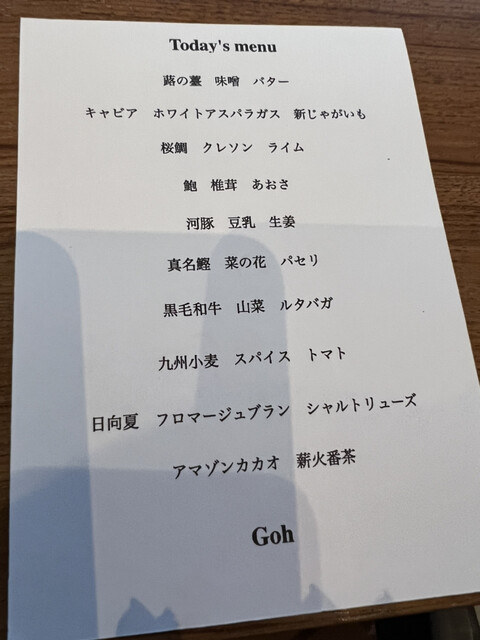 Today's menu
蕗の薹　味噌　バター
キャビア　ホワイトアスパラガス　新じゃがいも
桜鯛　クレソン　ライム
鮑　椎茸　あおさ
河豚　豆乳　生姜
真名鰹　菜の花　パセリ
黒毛和牛　山菜　ルタバガ
九州小麦　スパイス　トマト
日向夏　フロマージュブラン　シャルトリューズ
アマゾンカカオ　薪火番茶
Goh